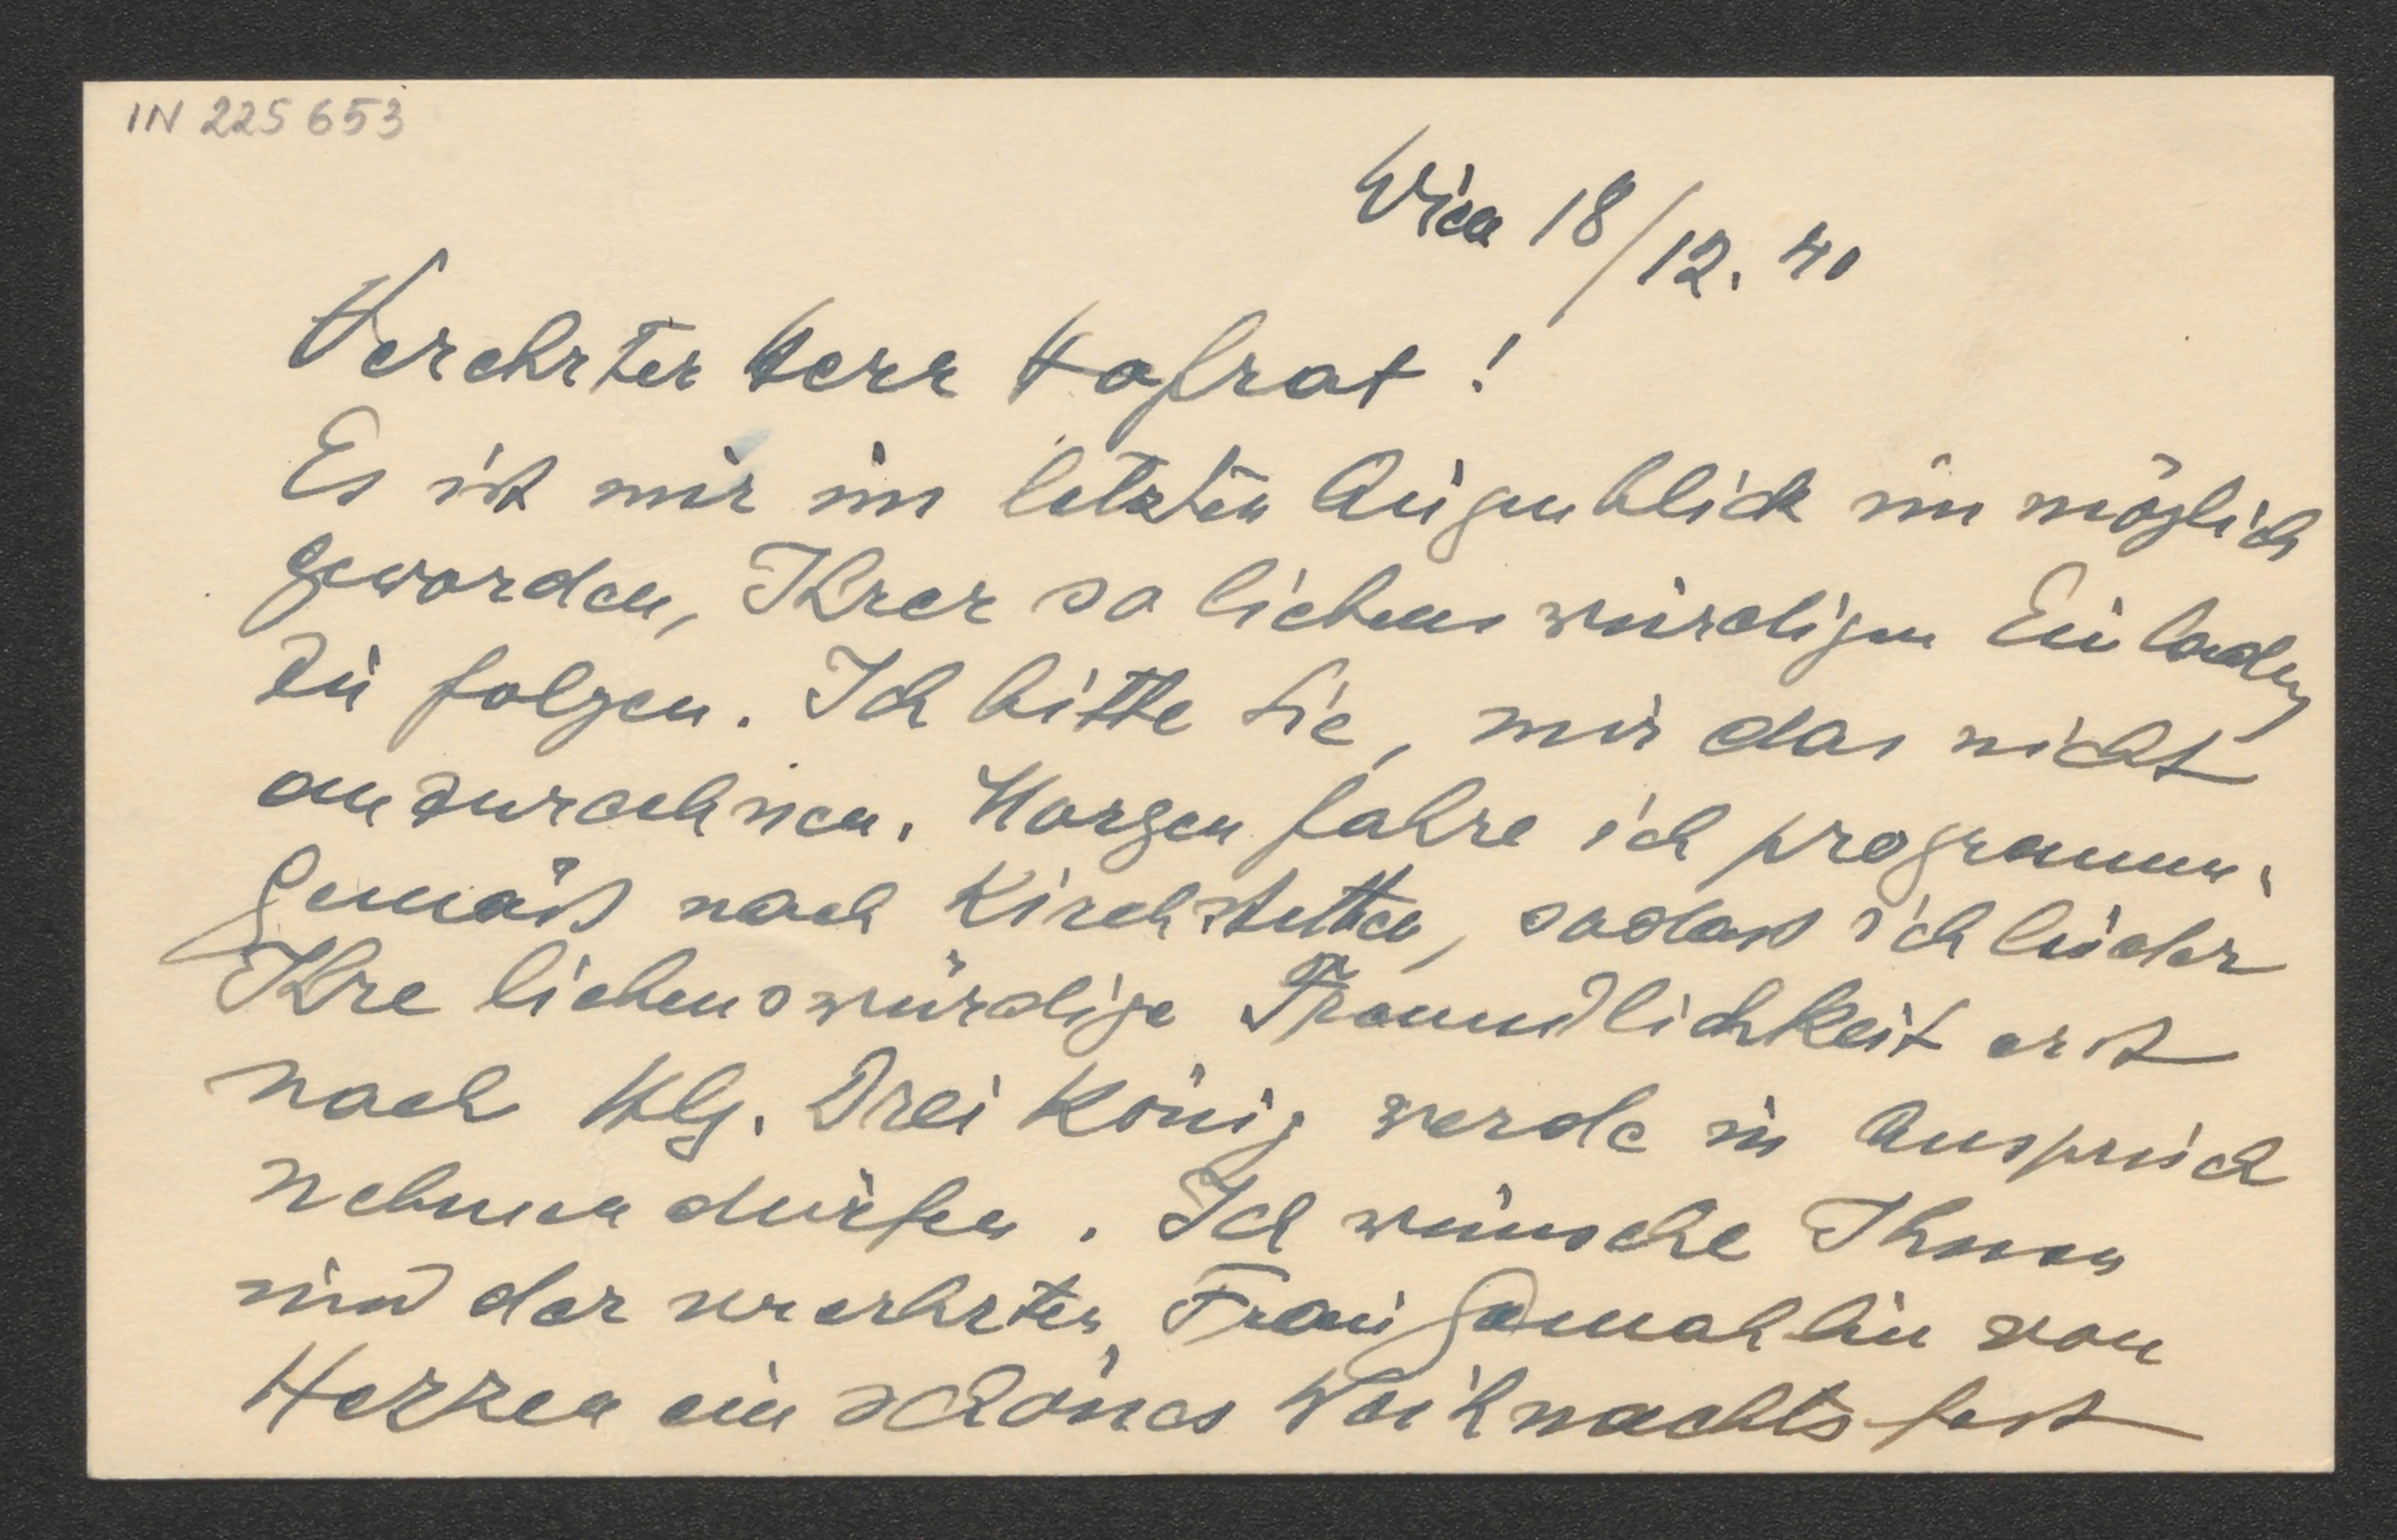 IN 225 653
Wien 18/12. 40
Verehrter Herr Hofrat!
Es ist mir im letzten Augenblick unmöglich
geworden, Ihrer so liebenswürdigen Einladung
zu folgen. Ich bitte Sie, mir das nicht
anzurechnen. Morgen fahre ich programm-
gemäß nach Kirchstetten, sodass ich leider
Ihre liebenswürdige Freundlichkeit erst
nach Hlg. Drei König werde in Anspruch
nehmen dürfen. Ich wünsche Ihnen
und der verehrten Frau Gemahlin von
Herzen ein schönes Weihnachtsfest